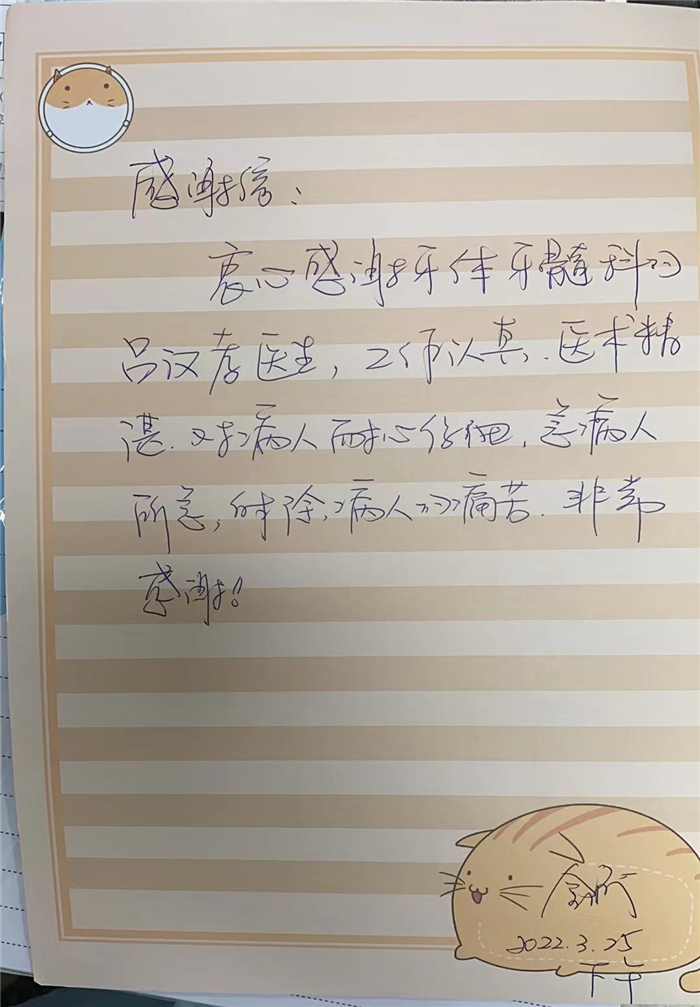 感谢信：
衷心感谢牙体牙髓科的
吕汉孝医生，工作认真．医术精
湛．又对病人耐心仔细，急病人
所急，解除病人的痛苦．非常
感谢！
2022.3.25
下午